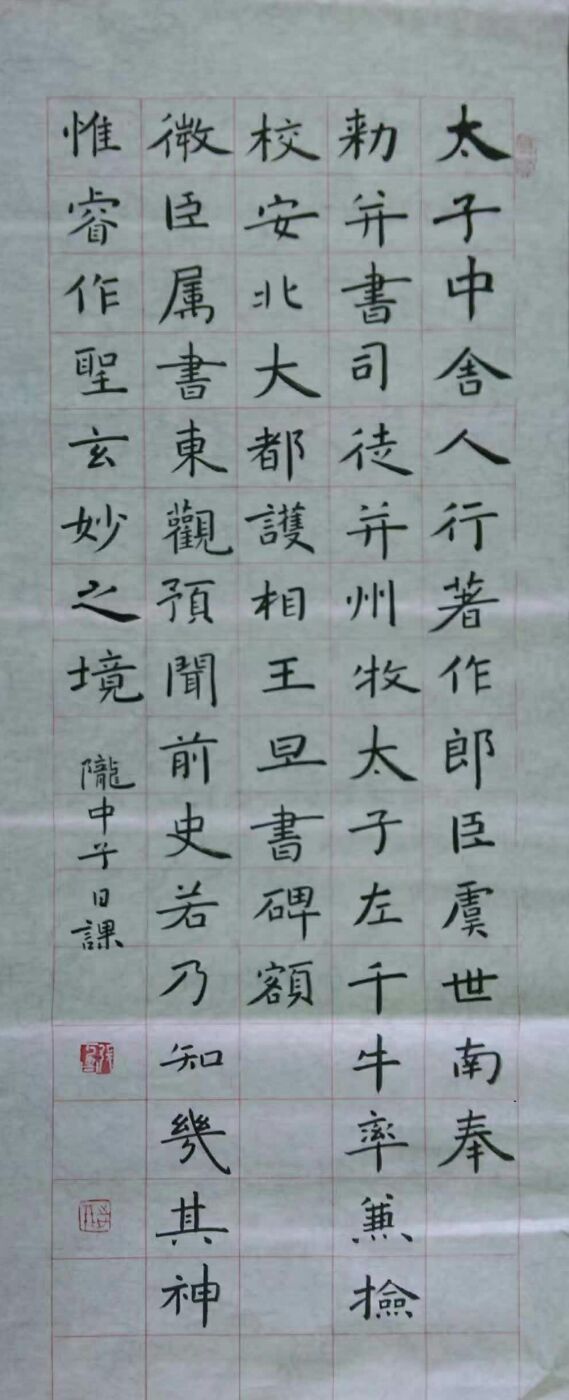 太子中舎人行著作郎臣虞世南奉
勑并書司徒并州牧太子左千牛率兼撿
校安北大都護相王旦書碑額
微臣属書東觀預聞前史若乃知幾其神
惟睿作聖玄妙之境
隴中子日課